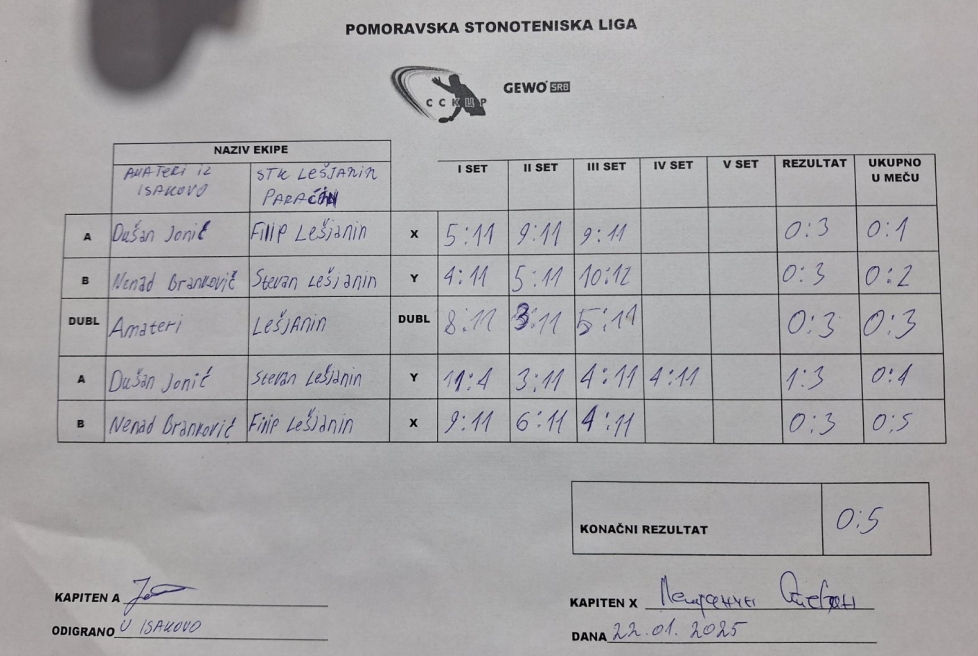 POMORAVSKA STONOTENISKA LIGA
ССКШР GEWO SRB
NAZIV EKIPE
AMATERI IZ ISAKOVO STK LEŠJANIN PARAĆIN I SET II SET III SET IV SET V SET REZULTAT UKUPNO U MEČU
A Dušan Jonić Filip Lešjanin X 5:11 9:11 9:11 0:3 0:1
B Nenad Branković Stevan Lešjanin Y 4:11 5:11 10:12 0:3 0:2
DUBL Amateri LEŠJANIN DUBL 8:11 3:11 5:11 0:3 0:3
A Dušan Jonić Stevan Lešjanin Y 11:4 3:11 4:11 4:11 1:3 0:4
B Nenad Branković Filip Lešjanin X 9:11 6:11 4:11 0:3 0:5
KONAČNI REZULTAT 0:5
KAPITEN A
KAPITEN X Лешјанин Стеван
ODIGRANO U ISAKOVO
DANA 22.01.2025